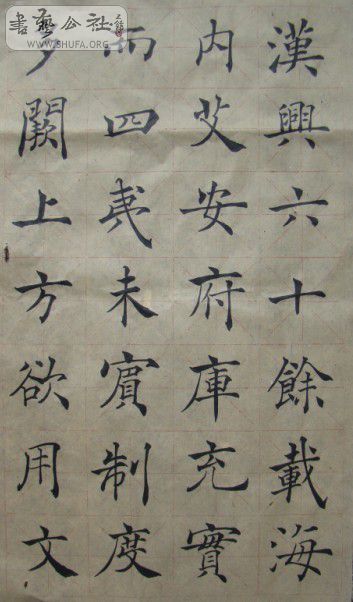 漢興六十餘載海
内艾安府庫充實
而四夷未賓制度
多闕上方欲用文
書藝公社
WWW.SHUFA.ORG